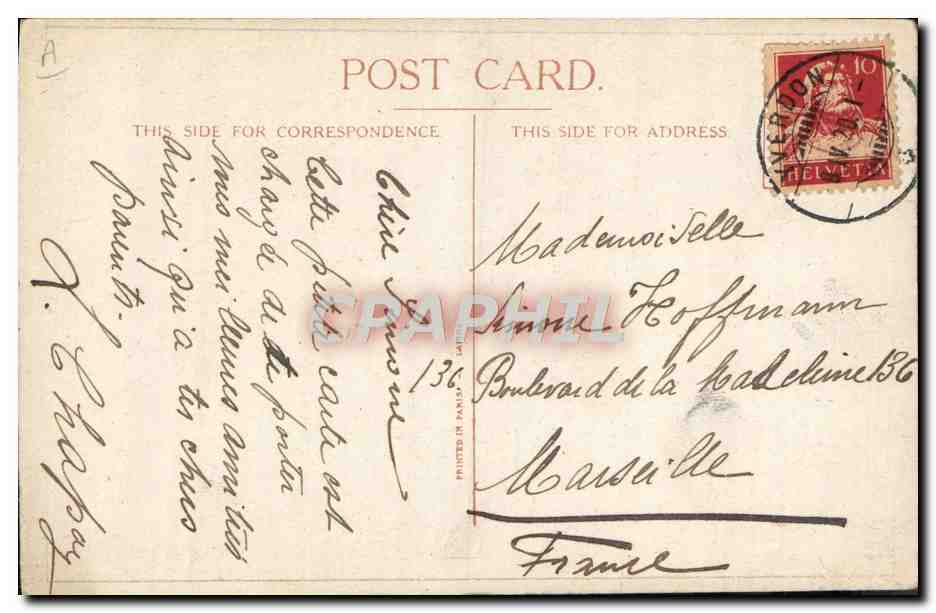 A)
POST CARD.
THIS SIDE FOR CORRESPONDENCE
THIS SIDE FOR ADDRESS
10
HELVETIA
YVERDON
Chère Simone
Cette petite carte est
chargée de te porter
mes meilleures amitiés
ainsi qu'à tes chers
parents.
Chapaz
136.
PRINTED IN PARIS
CPAPHIL
Mademoiselle
Simone Hoffmann
Boulevard de la Madeleine 136
Marseille
France